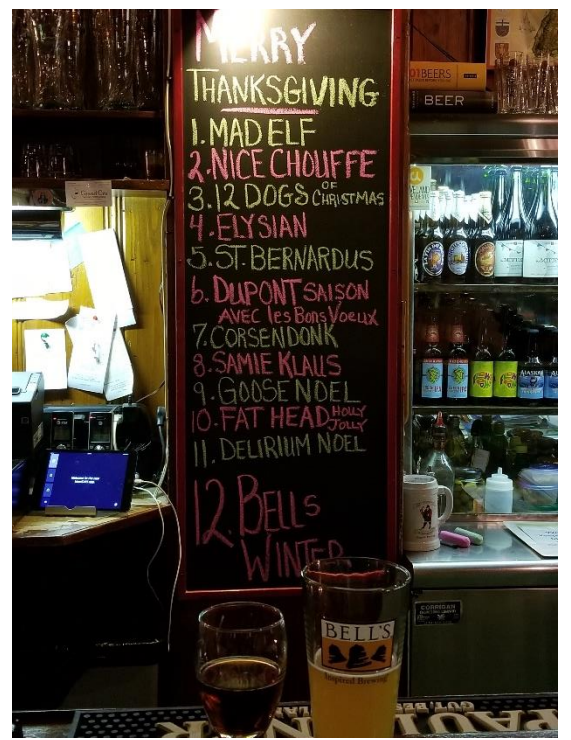 MERRY
THANKSGIVING
1. MAD ELF
2. NICE CHOUFFE
3. 12 DOGS OF CHRISTMAS
4. ELYSIAN
5. ST. BERNARDUS
6. DUPONT SAISON
AVEC les Bons Voeux
7. CORSENDONK
8. SAMIE KLAUS
9. GOOSE NOEL
10. FAT HEAD HOLLY JOLLY
11. DELIRIUM NOEL
12. BELLS
WINTER
BEERS
BEER
ALASKAN
CORRIGAN
BELL'S
Inspired Brewing
PAUL